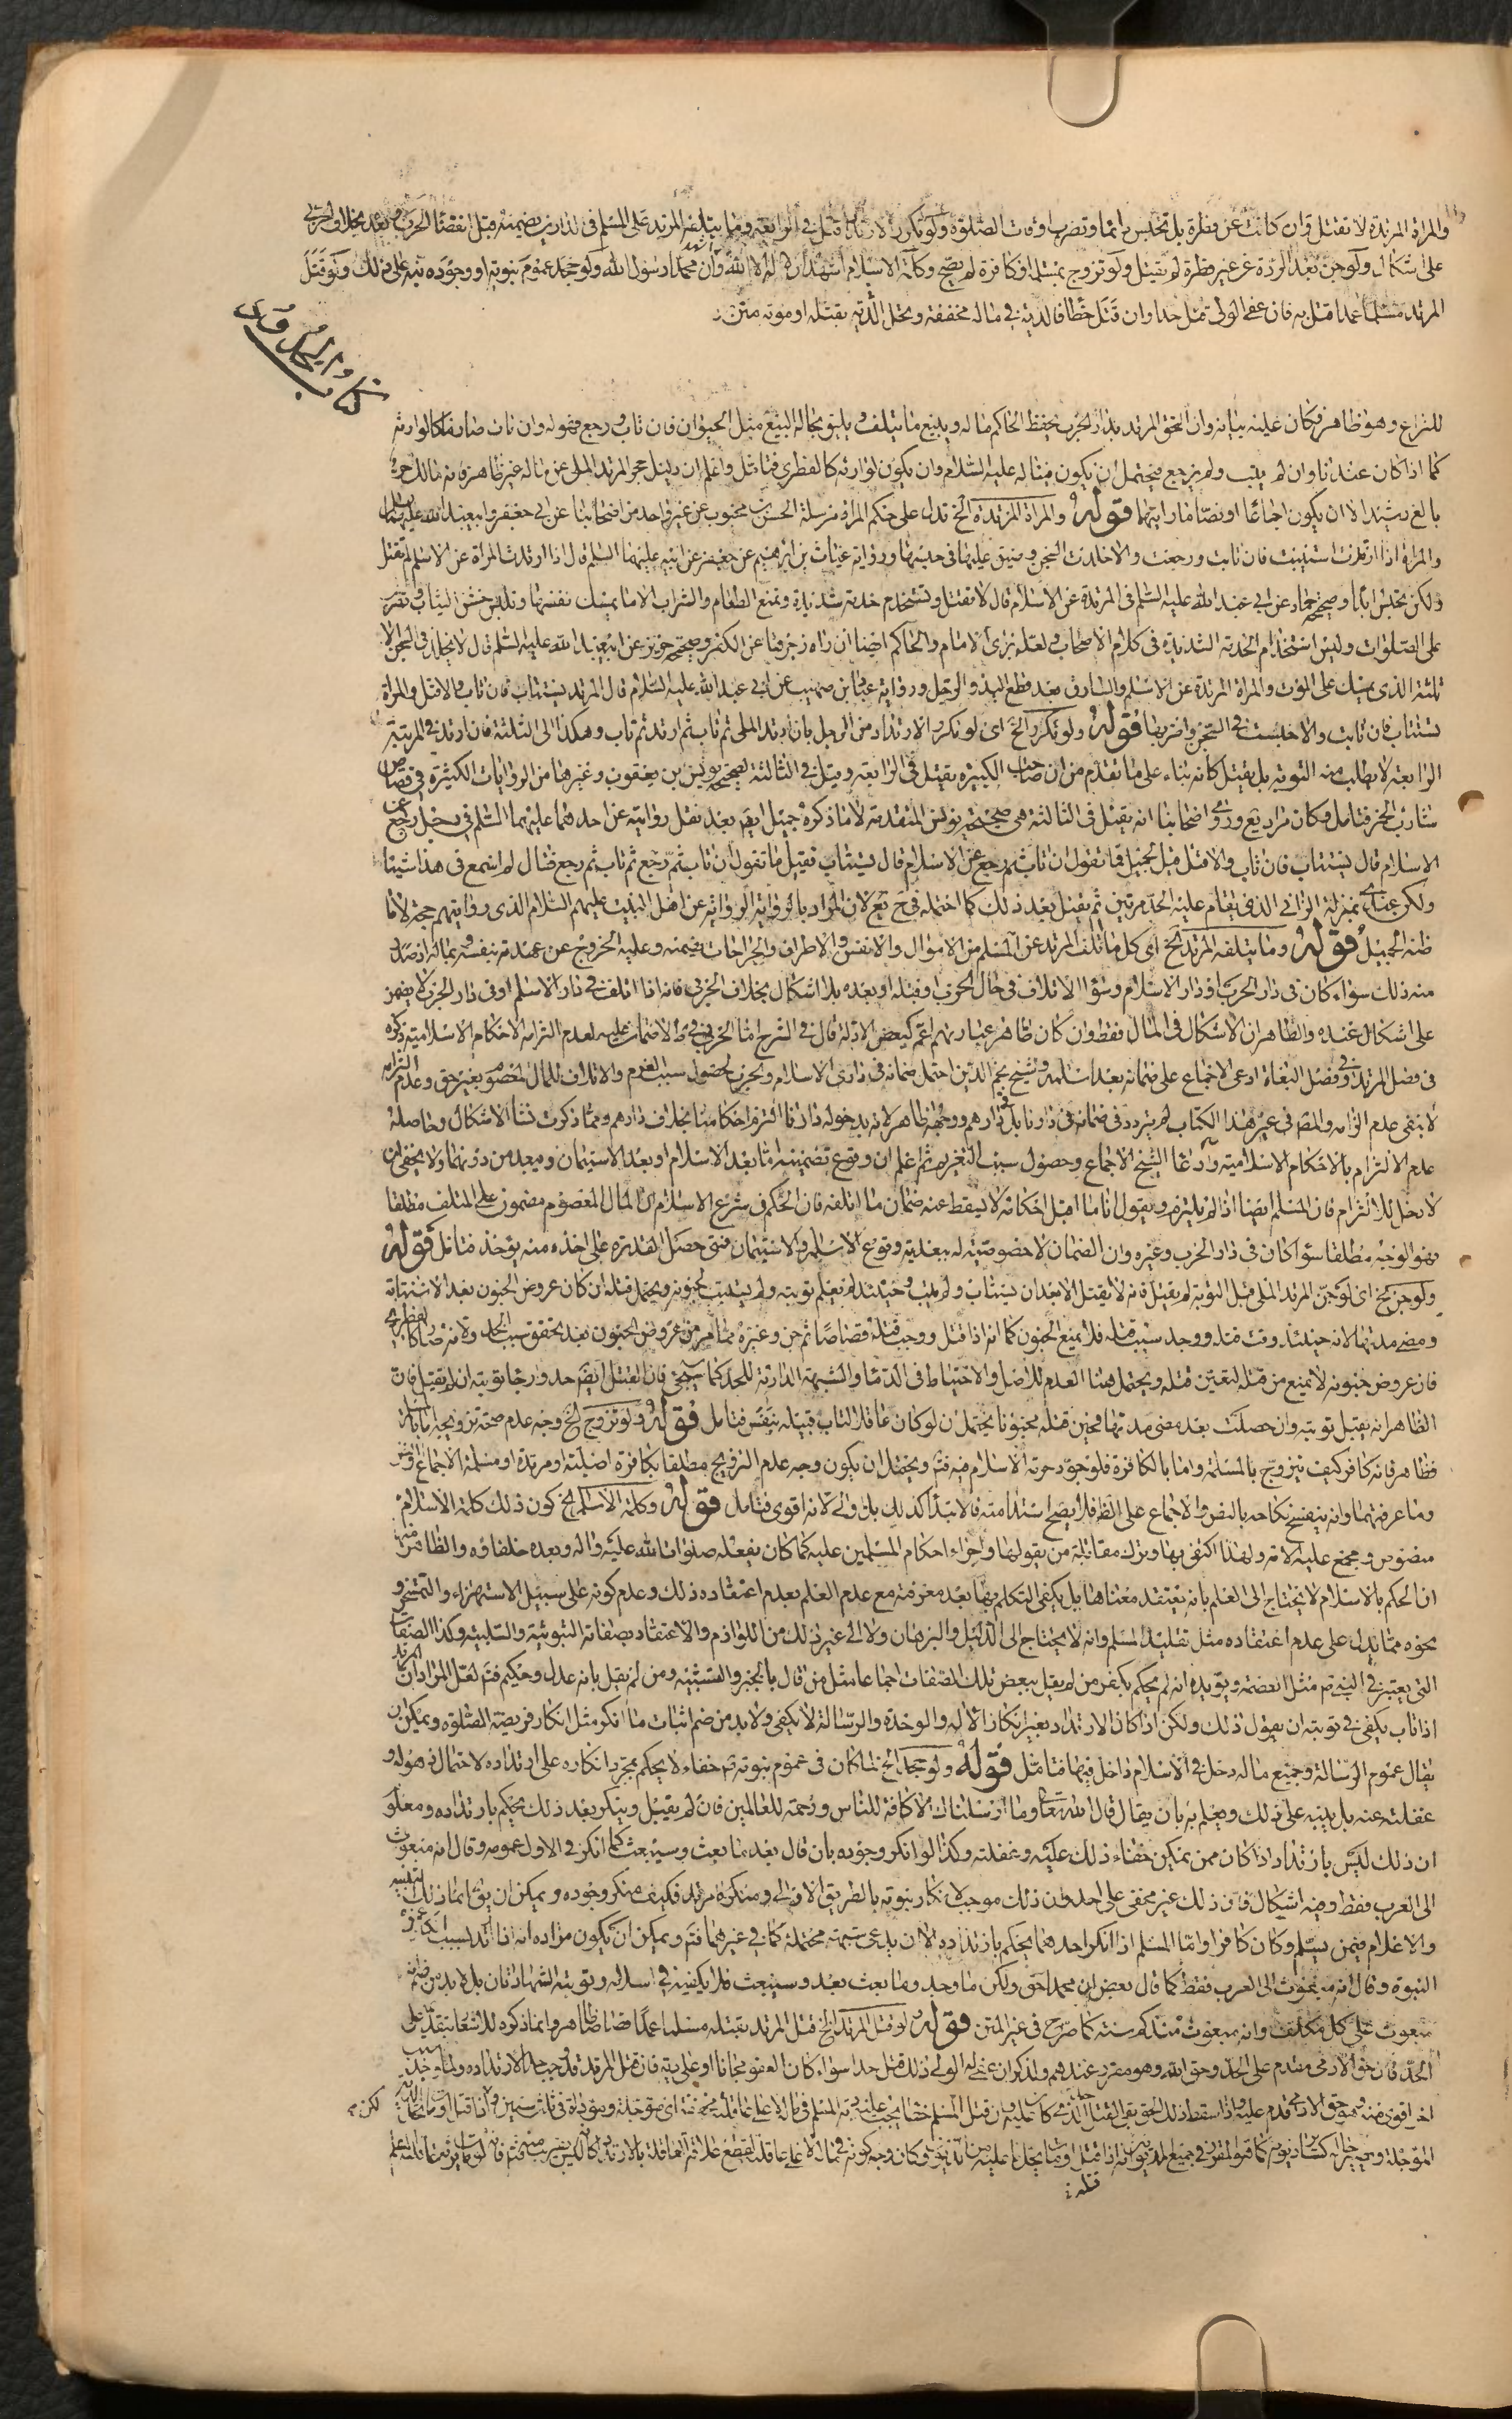 والمراة المرتدة لا تقتل وان كانت عن فطرة بل تحبس دائما وتضرب اوقات الصلوة ولو تكرر الارتداد قتل في الرابعة وما يتلفه المرتد على المسلم في الدارين يضمنه قبل انقضاء الحرب وبعده بخلاف الحربي
على اشكال ولو جن بعد الردة عن غير فطرة لم يقتل ولو تزوج بمسلمة او كافرة لم يصح وكلمة الاسلام اشهد ان لا اله الا الله وان محمدا رسول الله ولو جحد عموم نبوته او وجوده نبه على ذلك ولو قتل
المرتد مسلما عمدا قتل به فان عفى الولي قتل حدا وان قتل خطا فالدية في ماله مخففة وتحل الدية بقتله او موته متن
كتاب الحدود
للنزاع وهو ظاهر وكان عليه بيانه وان لحق المرتد بدار الحرب يحفظ الحاكم ماله ويبيع ما يتلف ويليق بحاله البيع مثل الحيوان فان تاب ورجع فهو له وان مات صار فيئا كالوارثه
كما اذا كان عندنا وان لم يتب ولم يرجع فيحتمل ان يكون فيئا له عليه السلام وان يكون لوارثه كالفطري فتامل واعلم ان دليل حجر المرتد الملي عن ماله غير ظاهر فانه مالك حر
بالغ رشيد الا ان يكون اجماعا او نصا ما رايتهما قوله والمراة المرتدة الخ تدل على حكم المراة مرسلة الحسن بن محبوب عن غير واحد من اصحابنا عن ابي جعفر وابي عبد الله عليهما السلم
والمراة اذا ارتدت استتيبت فان تابت ورجعت والا خلدت السجن وضيق عليها في حبسها ورواية غياث بن ابرهيم عن جعفر عن ابيه عليهما السلم قال اذا ارتدت المراة عن الاسلام لم تقتل
ولكن تحبس ابدا وصحيحة حماد عن ابي عبد الله عليه السلم في المرتدة عن الاسلام قال لا تقتل وتستخدم خدمة شديدة وتمنع الطعام والشراب الا ما يمسك نفسها وتلبس خشن الثياب وتضرب
على الصلوات وليس استخدام الخدمة الشديدة في كلام الاصحاب ولعله برأي الامام والحاكم ايضا ان راه زجرنا عن الكفر وصحيحة حريز عن ابي عبد الله عليه السلم قال لا يخلد في السجن الا
ثلثة الذي يمسك على الموت والمراة المرتدة عن الاسلام والسارق بعد قطع اليد والرجل ورواية عباد بن صهيب عن ابي عبد الله عليه السلام قال المرتد يستتاب فان تاب والا قتل والمراة
تستتاب فان تابت والا حبست في السجن واضر بها قوله ولو تكرر الخ اى لو تكرر الارتداد من الرجل بان ارتد الملي ثم تاب ثم ارتد ثم تاب وهكذا الى الثلثة فان ارتد في المرتبة
الرابعة لا يطلب منه التوبة بل يقتل كانه بناء على ما تقدم من ان صاحب الكبيرة يقتل في الرابعة وقيل في الثالثة لصحيحة يونس بن يعقوب وغيرها من الروايات الكثيرة في خصوص
شارب الخمر فتامل فكان مراد يع وروى اصحابنا انه يقتل في الثالثة هي صحيحة يونس المتقدمة لا ما ذكره جميل ايضا بعد نقل روايته عن احدهما عليهما السلم في رجل رجع عن
الاسلام قال يستتاب فان تاب والا قتل قيل لجميل فما تقول ان تاب ثم رجع عن الاسلام قال يستتاب فقيل ما تقول ان تاب ثم رجع ثم تاب ثم رجع فقال لم اسمع في هذا شيئا
ولكن عندي بمنزلة الزاني الذي يقام عليه الحد مرتين ثم يقتل بعد ذلك كما احتمله في ح يع لان المراد بالرواية الرواية عن اهل البيت عليهم السلام الذي روايتهم حجة لا ما
ظنه الجميل قوله وما يتلفه المرتد الخ اى كل ما اتلف المرتد عن المسلم من الاموال والانفس والاطراف والجراحات يضمنه وعليه الخروج عن عهدته بنفسه وبماله اذ صدر
منه ذلك سواء كان في دار الحرب او دار الاسلام وسواء الاتلاف في حال الحرب او قبله او بعده بلا اشكال بخلاف الحربي فانه اذا اتلف في دار الاسلام او في دار الحرب لا يضمن
على اشكال عنده والظاهر ان الاشكال في المال فقط وان كان ظاهر عبارتهم اعم كبعض الادلة قال في الشرح اما الحربي ففي ط لا ضمان عليه لعدم التزامه الاحكام الاسلامية ذكره
في فصل المرتد وفي فصل البغاة ادعى الاجماع على ضمانه بعد اسلامه وشيخ نجم الدين احتمل ضمانه في دارى الاسلام والحرب لحصول سبب الغرم والاتلاف للمال المعصوم بغير حق وعدم التزامه
لا ينفى عدم الزامه والمصنف في غير هذا الكتاب لم يتردد في ضمانه في دارنا بل في دارهم ووجهه ظاهر لانه بدخوله دارنا التزم احكامنا بخلاف دارهم ومما ذكرت نشأ الاشكال وحاصله
عدم الالتزام بالاحكام الاسلامية وادعاء الشيخ الاجماع وحصول سبب التغريم ثم اعلم ان وقوع تضمينه اما بعد الاسلام او بعد الاستيمان ومعه من دونهما ولا يخفى ان
لا دخل للالتزام فان المسلم ايضا اذا لم يلتزم ويقول انا ما اقبل احكامه لا يسقط عنه ضمان ما اتلفه فان الحكم في شرع الاسلام ان المال المعصوم مضمون على المتلف مطلقا
فهو الوجه مطلقا سواء كان في دار الحرب وغيره وان الضمان لا خصوصية له ببعديته وقوع الاسلام والاستيمان فمتى حصل القدرة على اخذه منه يؤخذ فتامل قوله
ولو جن الخ اى لو جن المرتد الملي قبل التوبة لم يقتل فانه لا يقتل الا بعد ان يستتاب ولم يتب وحينئذ لم يعلم توبته ولم يستتب لجنونه ويحتمل قتله ان كان عروض الجنون بعد الاستتابة
ومضى مدتها لانه حينئذ وقت قتله ووجد سبب قتله فلا يمنع الجنون كما انه اذا قتل ووجب قتله قصاصا ثم جن وغيره مما مر من عروض الجنون بعد تحقق سبب الحد ولانه صار كالفطري
فان عروض جنونه لا يمنع من قتله لتعين قتله ويحتمل هنا العدم للاصل والاحتياط في الدماء والشبهة الدارئة للحد كما سيجئ فان القتل ايضا حد ورجاء توبته ان لم يقبل فان
الظاهر انه يقبل توبته وان حصلت بعد مضى مدتها فحين قتله مجنونا يحتمل ان لو كان عاقلا لتاب قبيله بنفس فتامل قوله ولو تزوج الخ وجه عدم صحة تزويجه بالمسلمة
ظاهر فانه كافر كيف يتزوج بالمسلمة واما بالكافرة فلوجود حرمة الاسلام فيه فتم ويحتمل ان يكون وجه عدم التزويج مطلقا بكافرة اصلية او مرتدة او مسلمة الاجماع
وما عرفتهما وانه ينفسخ نكاحه بالنص والاجماع على الظ فلا يصح استدامته فالابتداء كذلك بل اولى لانه اقوى فتامل قوله وكلمة الاسلام الخ كون ذلك كلمة الاسلام
منصوص ومجمع عليه لانه ولهذا اكتفى بها وترك مقاتلة من يقولها واجراء احكام المسلمين عليه كما كان يفعله صلوات الله عليه واله وبعده خلفاؤه والظاهر
ان الحكم بالاسلام لا يحتاج الى العلم بانه يعتقد معناها بل يكفى التكلم بها بعد معرفته مع عدم العلم بعدم اعتقاده ذلك وعدم كونه على سبيل الاستهزاء والتمسخر و
نحوه مما يدل على عدم اعتقاده مثل تقليد المسلم وانه لا يحتاج الى الدليل والبرهان ولا الى غير ذلك من اللوازم والاعتقاد بصفاته الثبوتية والسلبية وكذا الصفات
التي يعتبر في النبي ثم مثل العصمة ويؤيده انه لم يحكم بكفر من لم يقل ببعض تلك الصفات اجماعا مثل من قال بالجبر والتشبيه ومن لم يقل بانه عدل وحكيم فتم لعل المراد ان المرتد
اذا تاب يكفي في توبته ان يقول ذلك ولكن اذا كان الارتداد بغير انكار الاله والوحدة والرسالة لا يكفى ولا بد من ضم اثبات ما انكر مثل انكار فريضة الصلوة ويمكن ان
يقال عموم الرسالة وجميع ماله دخل في الاسلام داخل فيها فتامل قوله ولو جحد الخ لما كان في عموم نبوته ثم خفاء لا يحكم بمجرد انكاره على ارتداده لاحتمال ذهوله و
غفلته عنه بل ينبه على ذلك ويعلم به بان يقال قال الله تعالى وما ارسلناك الا كافة للناس ورحمة للعالمين فان لم يقبل وينكر بعد ذلك يحكم بارتداده ومعلوم
ان ذلك ليس بارتداد اذا كان ممن يمكن خفاء ذلك عليه وغفلته وكذا لو انكر وجوده بان قال بعد ما بعث وسيبعث كما انكر في الاول عمومه وقال انه مبعوث
الى العرب فقط وفيه اشكال فان ذلك غير مخفى على احد وان ذلك موجب لانكار نبوته بالطريق الاولى ومنكره مرتد فكيف منكر وجوده ويمكن ان يق انما ذلك التنبيه
والاعلام فيمن يسلم وكان كافرا واما المسلم اذا انكر احدهما يحكم بارتداده الا ان يدعى شبهة محتملة كما في غيرهما فتم ويمكن ان يكون مراده انه اذا ارتد بسبب انكار عموم
النبوة وقال انه مبعوث الى العرب فقط كما قال بعض ان محمدا حق ولكن ما وجد وما بعث بعد وسيبعث فلا يكفيه في اسلامه وتوبته الشهادتان بل لا بد من ضم انه
مبعوث على كل مكلف وانه مبعوث منذ كم سنة كما صرح في غير المتن قوله لو قتل المرتد الخ قتل المرتد بقتله مسلما عمدا قصاصا ظاهر وانما ذكره للاشعار بتقدمه على
الحد فان حق الادمي مقدم على الحد وحق الله وهو مقرر عندهم وليذكر ان عفى له الولي ذلك قتل حدا سواء كان العفو مجانا او على دية فان قتل المرتد قد وجب حدا لارتداده ولما وجد سبب
اخر اقوى منه وهو حق الادمي قدم عليه فاذا سقط ذلك الحق بقي القتل الذي كان عليه وان قتل المسلم خطا يجب عليه دية المسلم في ماله لا على عاقلته مخففة اى مؤجلة ومؤداة في ثلث سنين واذا قتل او مات تحل الدية
المؤجلة وتصير حالة كسائر ديونه كما هو المقرر في جميع المديونين انه اذا قتل او مات يحل ما عليه من الديون وكان وجه كونه في ماله لا على عاقلته لقطع علاقة العاقلة بالارتداد
لكن
قتله